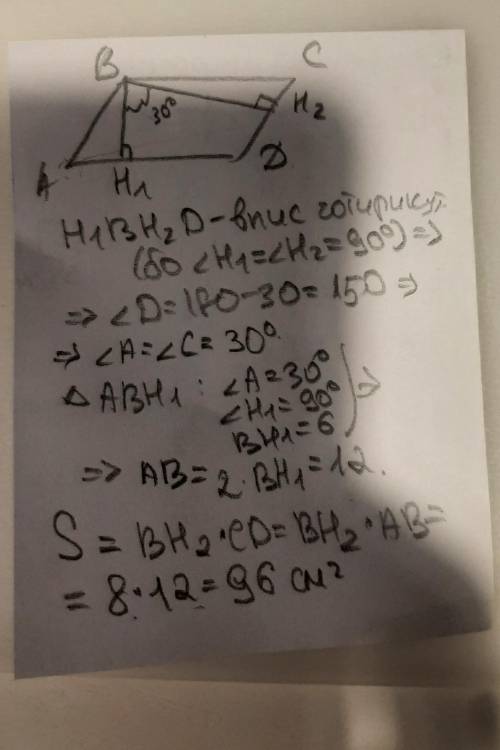 B C
30° H2
A H1 D
H1BH2D-впис чотирикут.
(бо ∠H1=∠H2=90°) =>
=> ∠D=180-30=150 =>
=> ∠A=∠C=30°.
△ABH1: ∠A=30°
∠H1=90° =>
BH1=6
=> AB=2·BH1=12.
S=BH2·CD=BH2·AB=
=8·12=96 см²